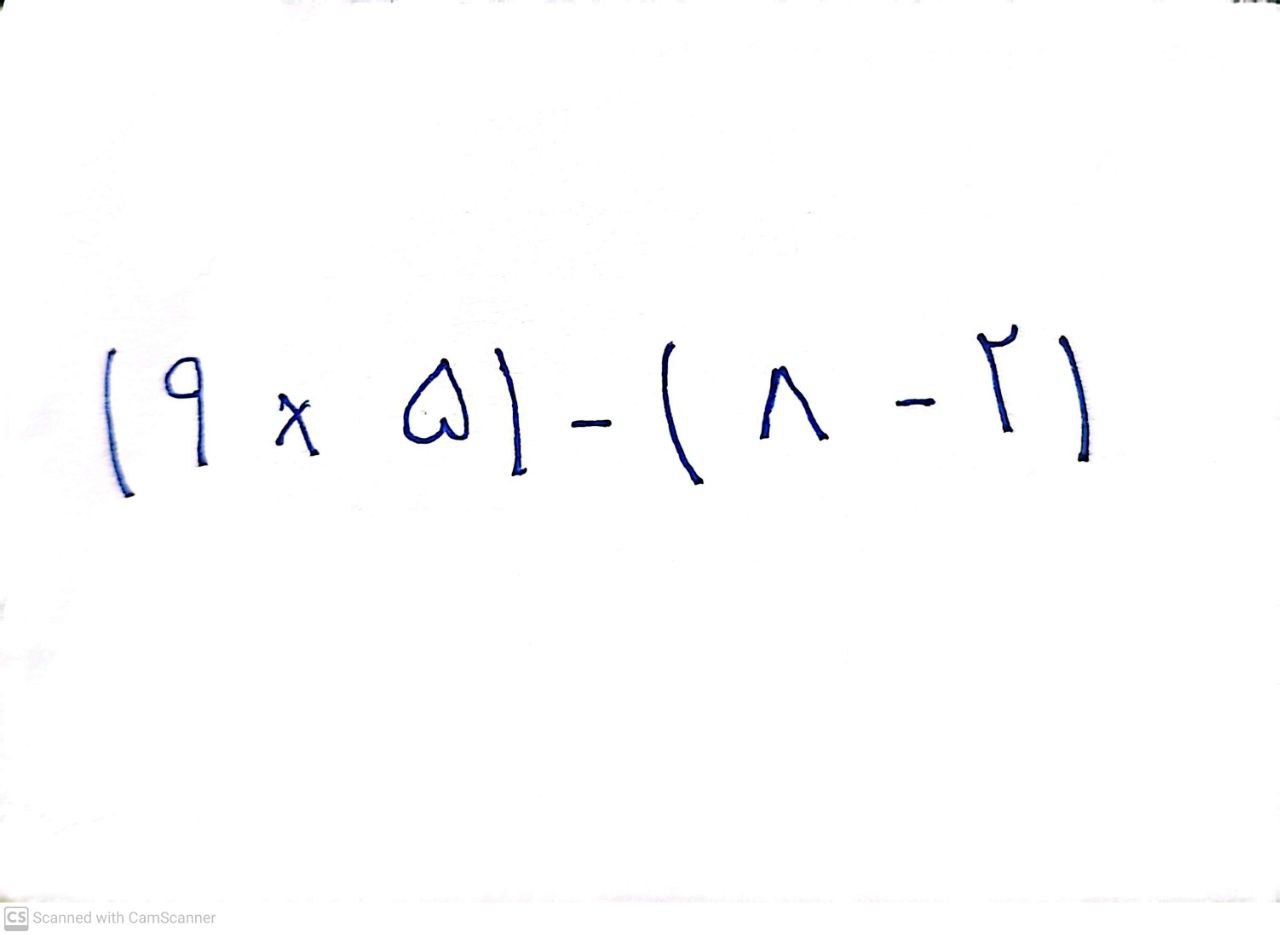 (۹ × ۵) - (۸ - ۲)
CS Scanned with CamScanner